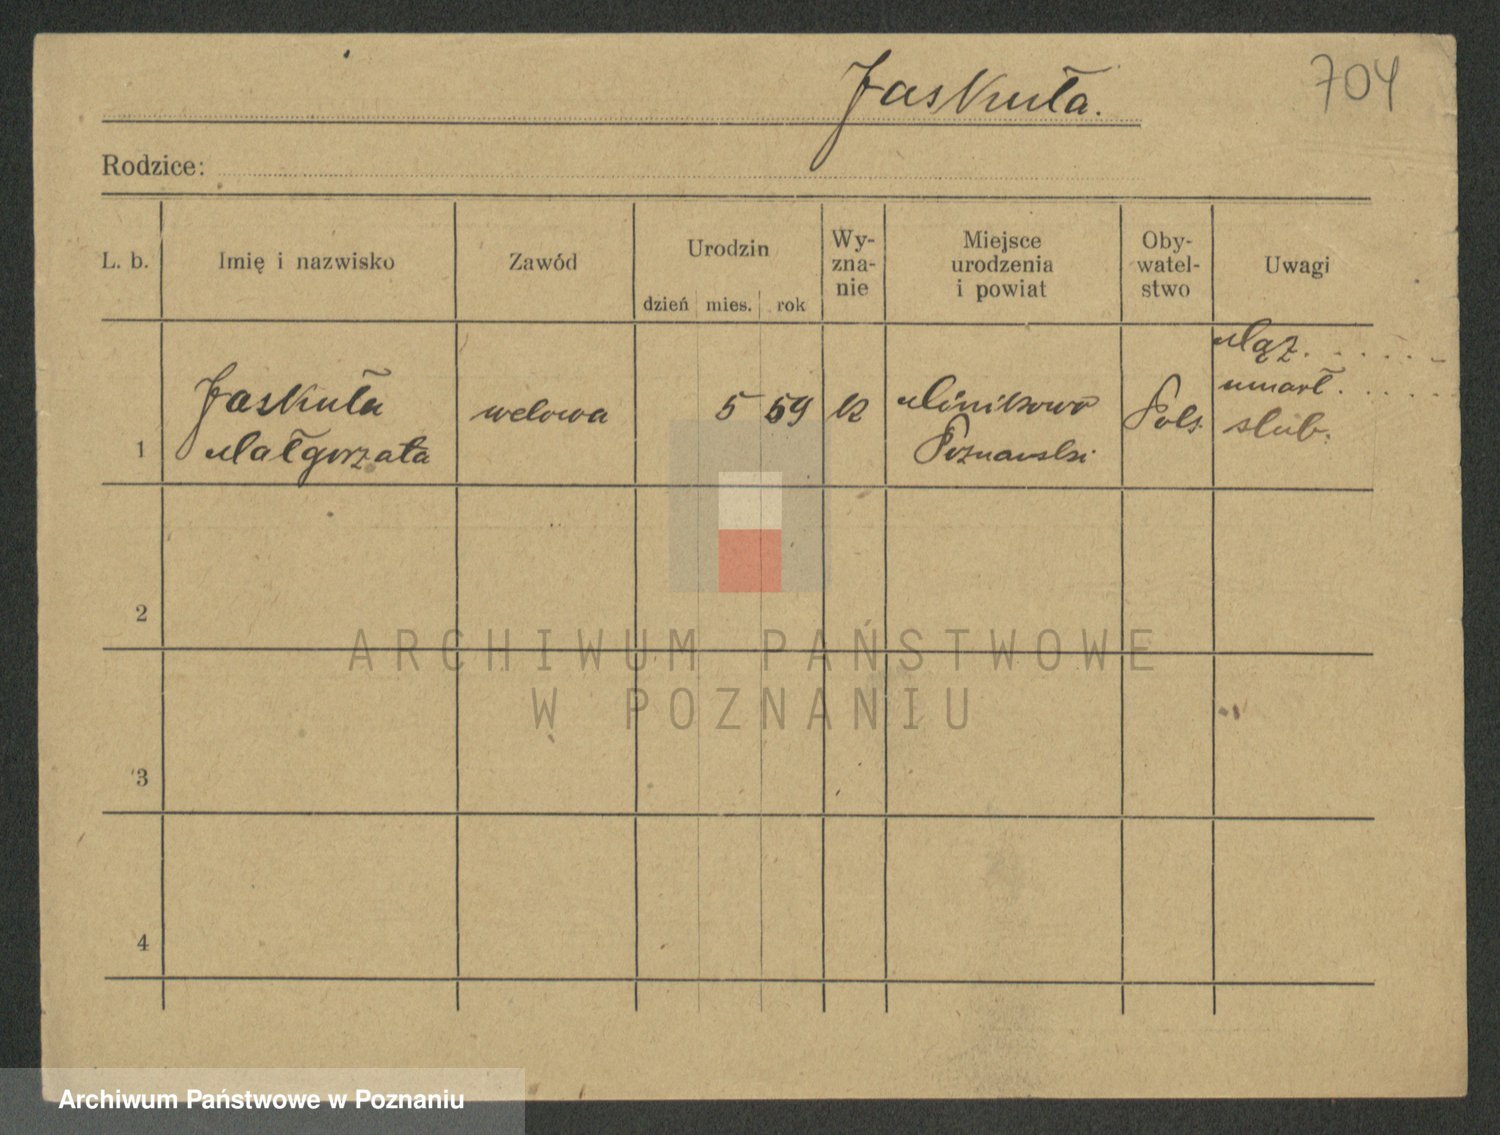 Jaskuła.
704
Rodzice:
L. b.
Imię i nazwisko
Zawód
Urodzin
dzień mies. rok
Wy-
zna-
nie
Miejsce
urodzenia
i powiat
Oby-
watel-
stwo
Uwagi
1
Jaskuła
Małgorzata
wdowa
5 59
k
Minikowo
Poznański
Pols.
Mąż . . . . .
umarł. . . . .
ślub.
2
3
4
ARCHIWUM PAŃSTWOWE
W POZNANIU
Archiwum Państwowe w Poznaniu